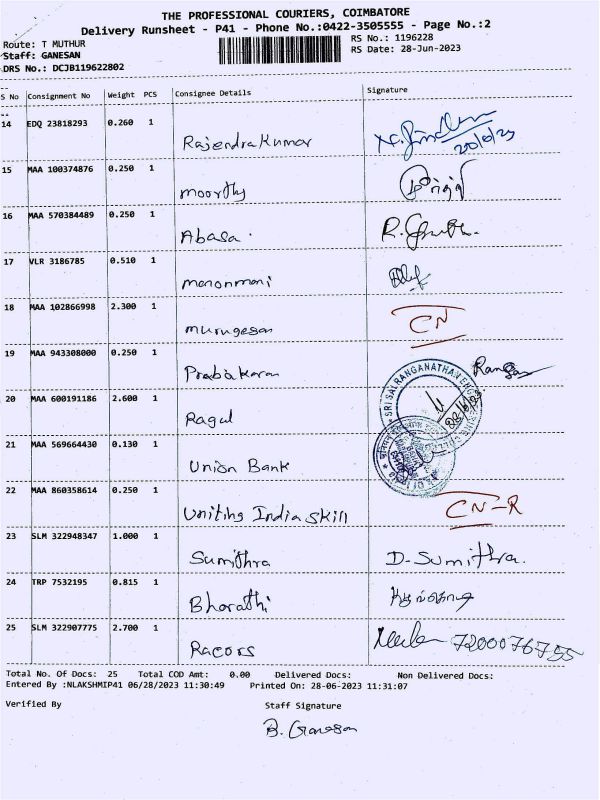 THE PROFESSIONAL COURIERS, COIMBATORE
Delivery Runsheet - P41 - Phone No.:0422-3505555 - Page No.:2
Route: T MUTHUR
Staff: GANESAN
DRS No.: DCJB119622802
RS No.: 1196228
RS Date: 28-Jun-2023
S No Consignment No Weight PCS Consignee Details Signature
14 EDQ 23818293 0.260 1 Rajendra Kumar
15 MAA 100374876 0.250 1 moorthy
16 MAA 570384489 0.250 1 Abasa.
17 VLR 3186785 0.510 1 manonmani
18 MAA 102866998 2.300 1 murugesan CN
19 MAA 943308000 0.250 1 Prabakaran
20 MAA 600191186 2.600 1 Ragul
SRI SAI RANGANATHAN ENGINEERING
21 MAA 569664430 0.130 1 Union Bank
22 MAA 860358614 0.250 1 Uniting India Skill CN-R
23 SLM 322948347 1.000 1 Sumithra D. Sumithra.
24 TRP 7532195 0.815 1 Bharathi
25 SLM 322907775 2.700 1 Racors 7200076755
Total No. Of Docs: 25 Total COD Amt: 0.00 Delivered Docs: Non Delivered Docs:
Entered By :NLAKSHMIP41 06/28/2023 11:30:49 Printed On: 28-06-2023 11:31:07
Verified By Staff Signature
B. Ganesan